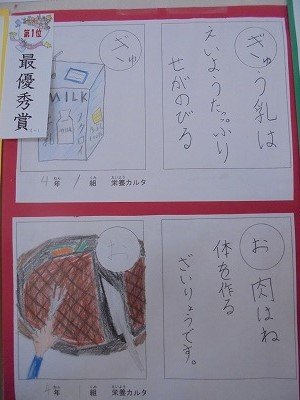 第1位
最優秀賞
ぎゅ
MILK
4年 1組 栄養カルタ
ぎゅう乳は
えいようたっぷり
せがのびる
お
4年 組 栄養カルタ
お肉はね
体を作る
ざいりょうです。